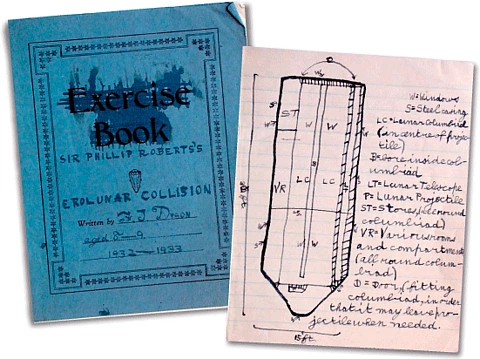 Exercise
Book
SIR PHILLIP ROBERTS'S
EROLUNAR COLLISION
Written by J Dyson
aged 8-9
1932-1933
D
W
S
ST
W
W
W
S
VR
LC
LC
S
W
W
15ft
W=Windows
S=Steel casing
LC=Lunar Columbiad
(in centre of projec-
tile)
B=bore inside col-
umbiad
LT=Lunar Telescope
P=Lunar Projectile
ST=Stores (all round
columbiad)
VR=Various rooms
and compartments
(all round colum-
biad)
D=Door, (fitting
columbiad, in order
that it may leave pro-
jectile when needed.